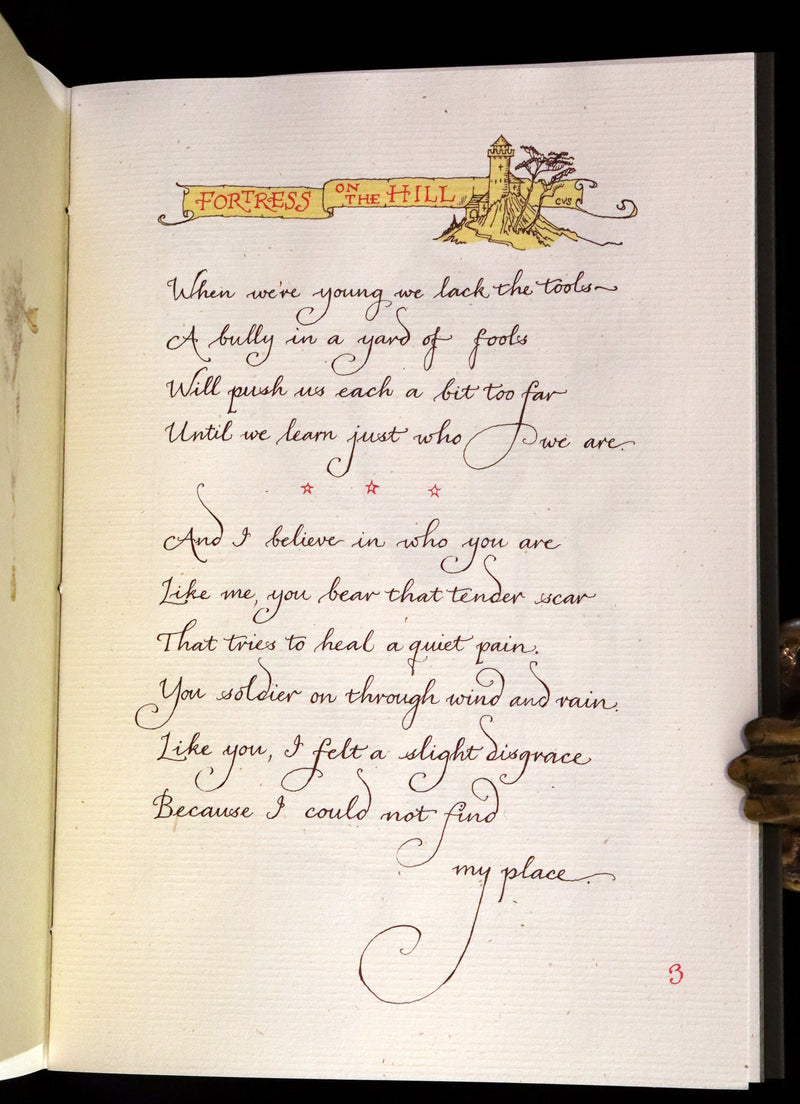 FORTRESS ON THE HILL
CVS
When we're young we lack the tools~
A bully in a yard of fools
Will push us each a bit too far
Until we learn just who we are.
☆ ☆ ☆
And I believe in who you are
Like me, you bear that tender scar
That tries to heal a quiet pain.
You soldier on through wind and rain.
Like you, I felt a slight disgrace
Because I could not find
my place.
3